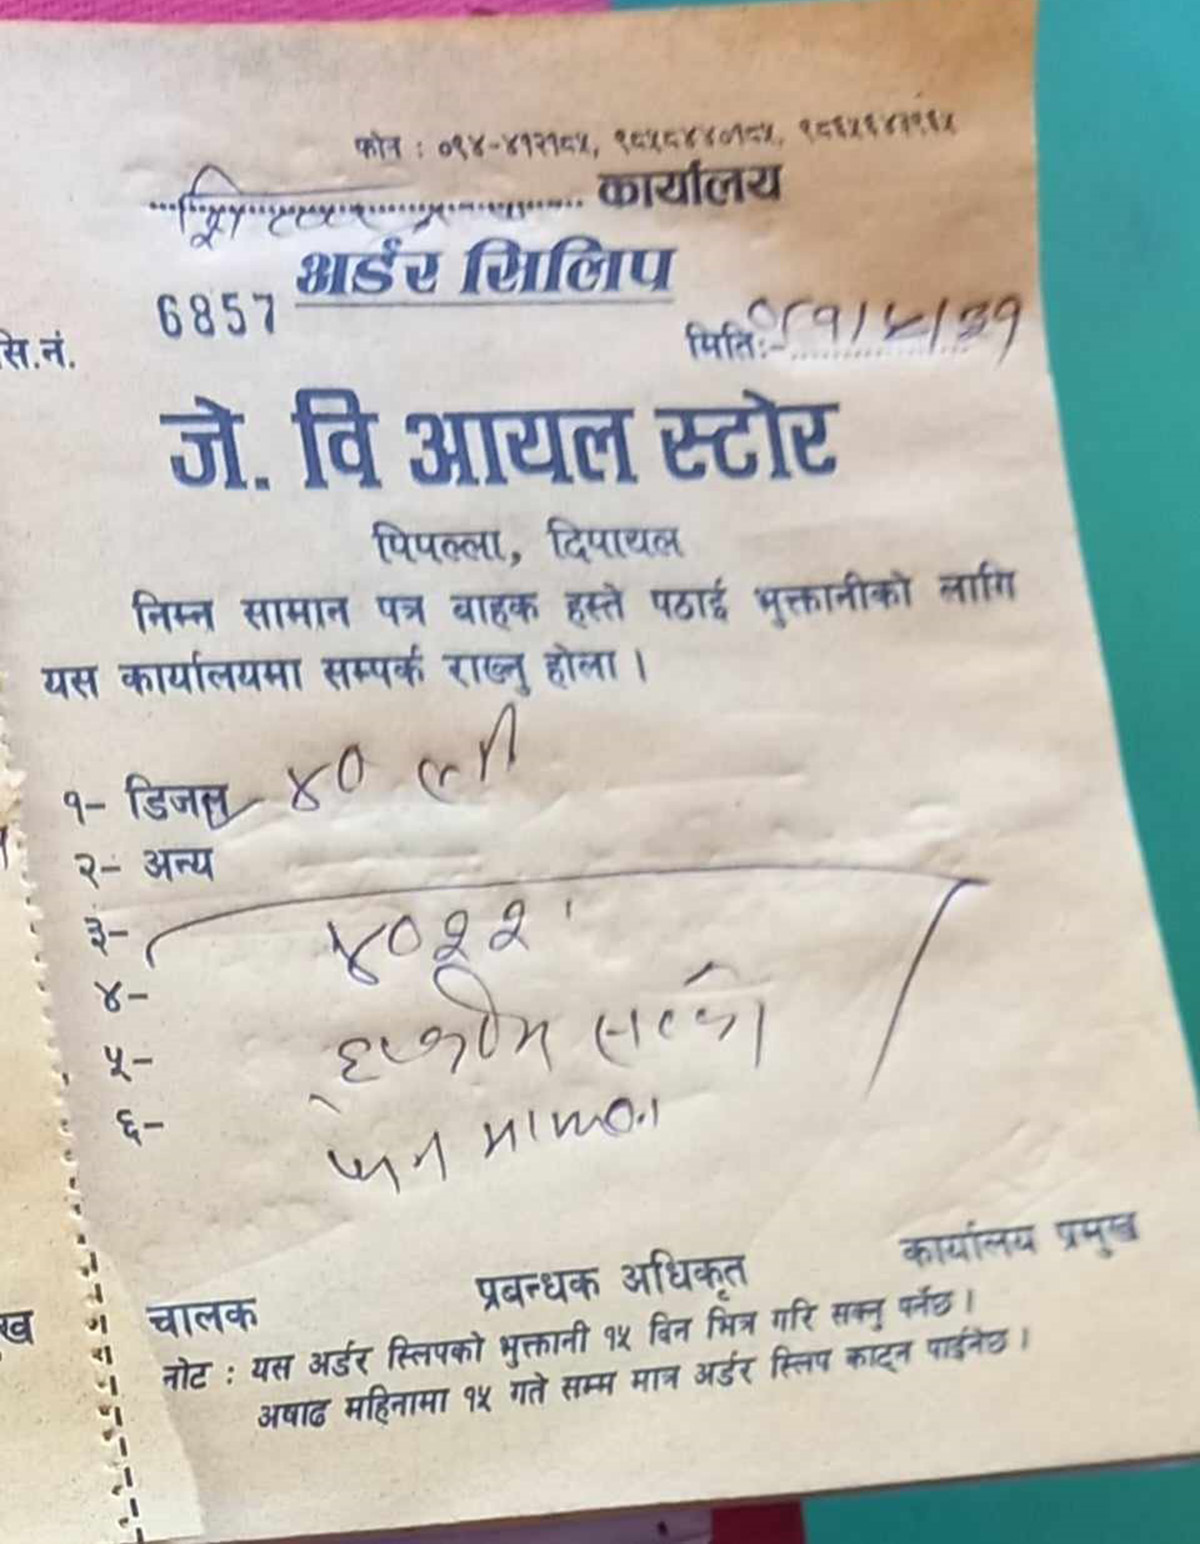 फोन : ०९४-४१२१८५, ९८५८४४०१८५,
कार्यालय
अर्डर सिलिप
सि.नं. 6857
मितिः-
जे. वि आयल स्टोर
पिपल्ला, दिपायल
निम्न सामान पत्र वाहक हस्ते पठाई भुक्तानीको लागि
यस कार्यालयमा सम्पर्क राख्नु होला ।
१- डिजल ४० ली
२- अन्य
३- ४०२२
४-
५-
६-
कार्यालय प्रमुख
प्रबन्धक अधिकृत
चालक
नोट : यस अर्डर स्लिपको भुक्तानी १५ दिन भित्र गरि सक्नु पर्नेछ ।
अषाढ महिनामा १५ गते सम्म मात्र अर्डर स्लिप काट्न पाईनेछ ।